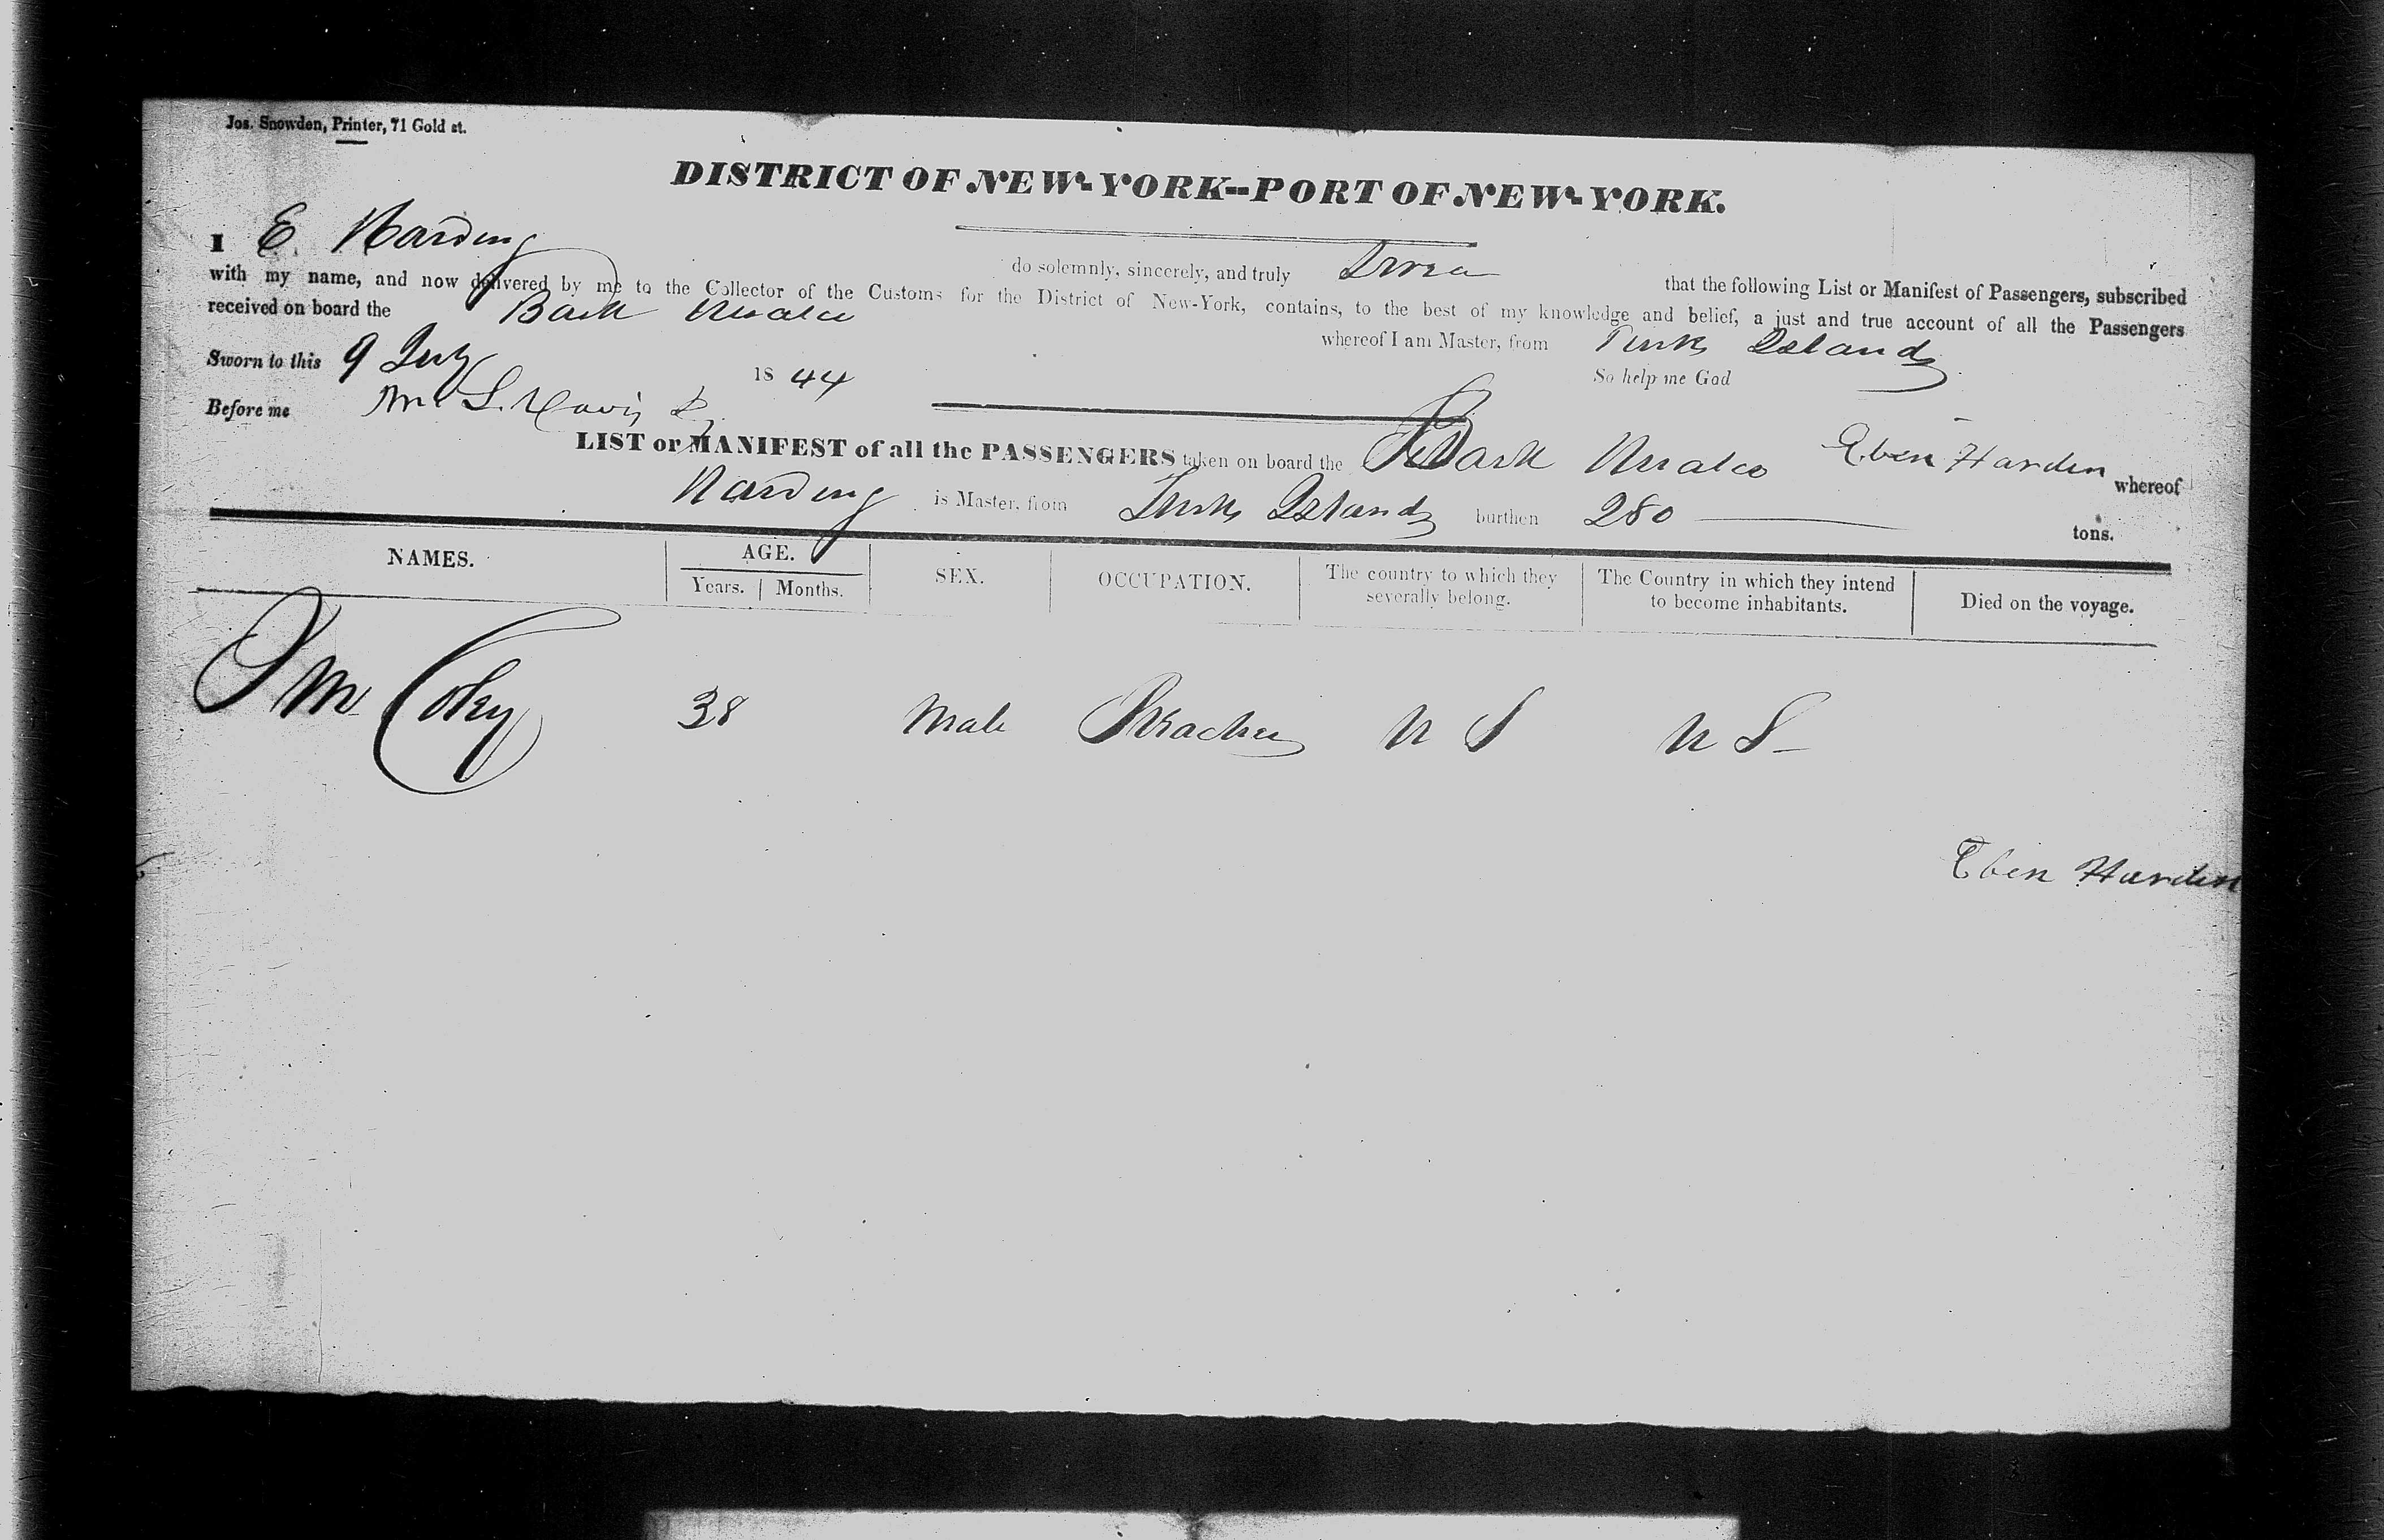 Jos. Snowden, Printer, 71 Gold st.
DISTRICT OF NEW-YORK--PORT OF NEW-YORK.
I E. Harding do solemnly, sincerely, and truly Swear that the following List or Manifest of Passengers, subscribed
with my name, and now delivered by me to the Collector of the Customs for the District of New-York, contains, to the best of my knowledge and belief, a just and true account of all the Passengers
received on board the Bark whereof I am Master, from Turks Islands
Sworn to this 9 July 1844 So help me God
Before me L. Davis
LIST or MANIFEST of all the PASSENGERS taken on board the Bark Eben Harden whereof
Harding is Master, from Turks Islands burthen 280 tons.
NAMES. AGE. SEX. OCCUPATION. The country to which they severally belong. The Country in which they intend to become inhabitants. Died on the voyage.
Years. Months.
Coley 38 Male U S U S
Eben Harden